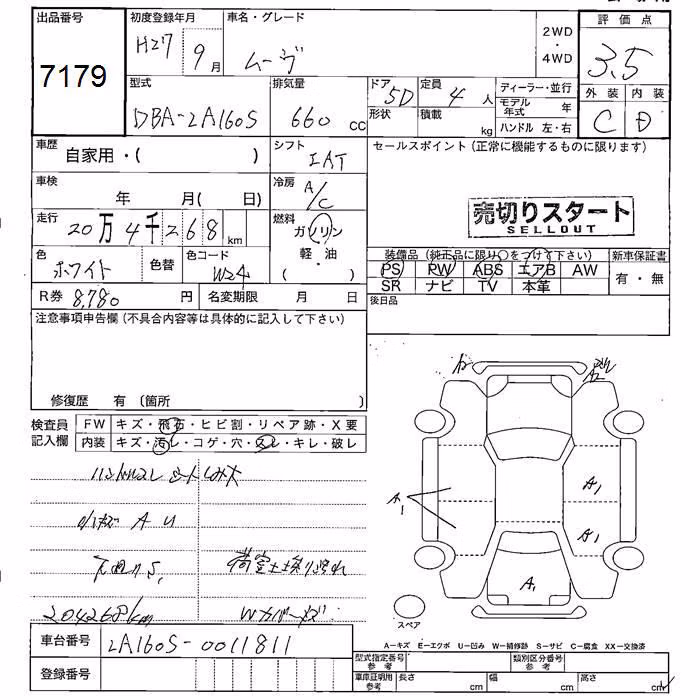 出品番号
7179
初度登録年月
H27 9月
車名・グレード
ムーヴ
2WD
・
4WD
評価点
3.5
外装 内装
C D
型式
DBA-LA160S
排気量
660 cc
ドア
5D
形状
定員
4 人
積載
kg
ディーラー・並行
モデル年式 年
ハンドル 左・右
車歴
自家用・( )
シフト
IAT
セールスポイント(正常に機能するものに限ります)
車検
年 月( 日)
冷房
A/C
売切りスタート
SELLOUT
走行
20万4千268 km
燃料
ガソリン
(軽・油)
色
ホワイト
色替
色コード
W24
装備品(純正品に限り○をつけて下さい)
PS PW ABS エアB AW
SR ナビ TV 本革
新車保証書
有・無
R券 8,780 円
名変期限 月 日
後日品
注意事項申告欄(不具合内容等は具体的に記入して下さい)
修復歴 有 (箇所 )
検査員
記入欄
FW キズ・飛石・ヒビ割・リペア跡・X要
内装 キズ・汚レ・コゲ・穴・スレ・キレ・破レ
ハンドルスレ シートしみ大
A U
204268km
A1
A1
A1
A1
A2
スペア
A-キズ E-エクボ U-凹み W-補修跡 S-サビ C-腐食 XX-交換済
車台番号
LA160S-0011811
登録番号
型式指定番号
参考
類別区分番号
参考
車庫証明用
参考
長さ cm
幅 cm
高さ cm